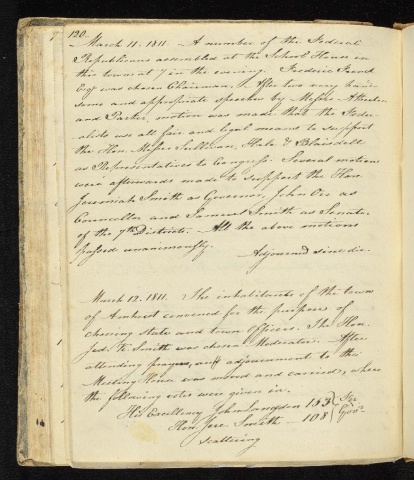 120.
March 11. 1811. A number of the Federal
Republicans assembled at the School House in
this town at 7 in the evening. Frederic French
Esqr was chosen Chairman. After two very hand-
some and appropriate speeches by Messrs Atherton
and Parker, motion was made that the Fede-
ralists use all fair and legal means to support
the Hon. Messrs Sullivan, Hale & Blaisdell
as Representatives to Congress. Several motions
were afterwards made to support the Hon.
Jeremiah Smith as Governor, John Orr as
Councellor and Samuel Smith as Senator
of the 7th District. All the above motions
passed unanimously.
Adjourned sine die.
March 12. 1811. The inhabitants of the town
of Amherst convened for the purposes of
choosing State and town Officers. The Hon.
Jed. K. Smith was chosen Moderator. After
attending prayers, an adjournment to the
Meeting House was moved and carried, where
the following votes were given in.
His Excellency John Langdon 133 For
Hon. Jere. Smith — 108 Govr
Scattering